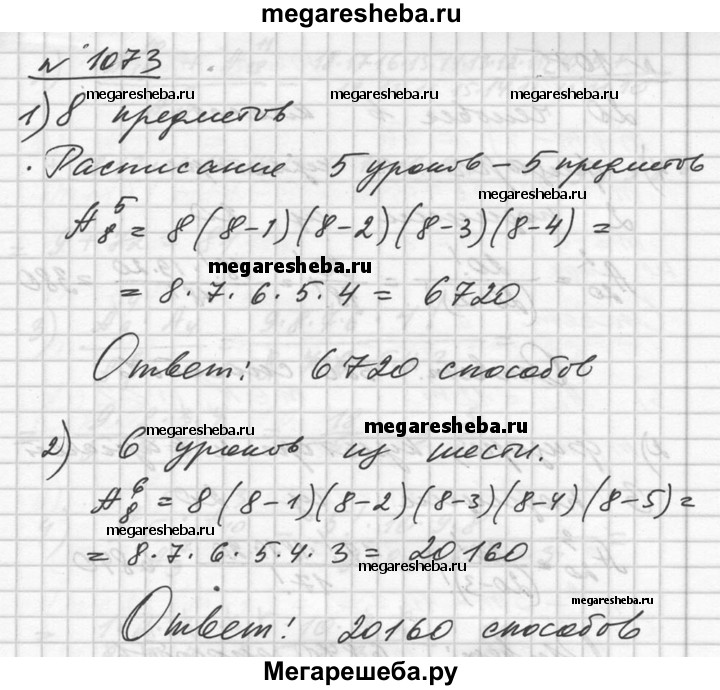 megaresheba.ru
№ 1073
megaresheba.ru megaresheba.ru
1) 8 предметов
. Расписание 5 уроков – 5 предметов
megaresheba.ru
A₈⁵ = 8(8-1)(8-2)(8-3)(8-4) =
megaresheba.ru
= 8·7·6·5·4 = 6720
Ответ: 6720 способов
megaresheba.ru megaresheba.ru
2) 6 уроков из шести.
A₈⁶ = 8(8-1)(8-2)(8-3)(8-4)(8-5) =
megaresheba.ru
= 8·7·6·5·4·3 = 20160
megaresheba.ru
megaresheba.ru
Ответ! 20160 способов
Мегарешеба.ру